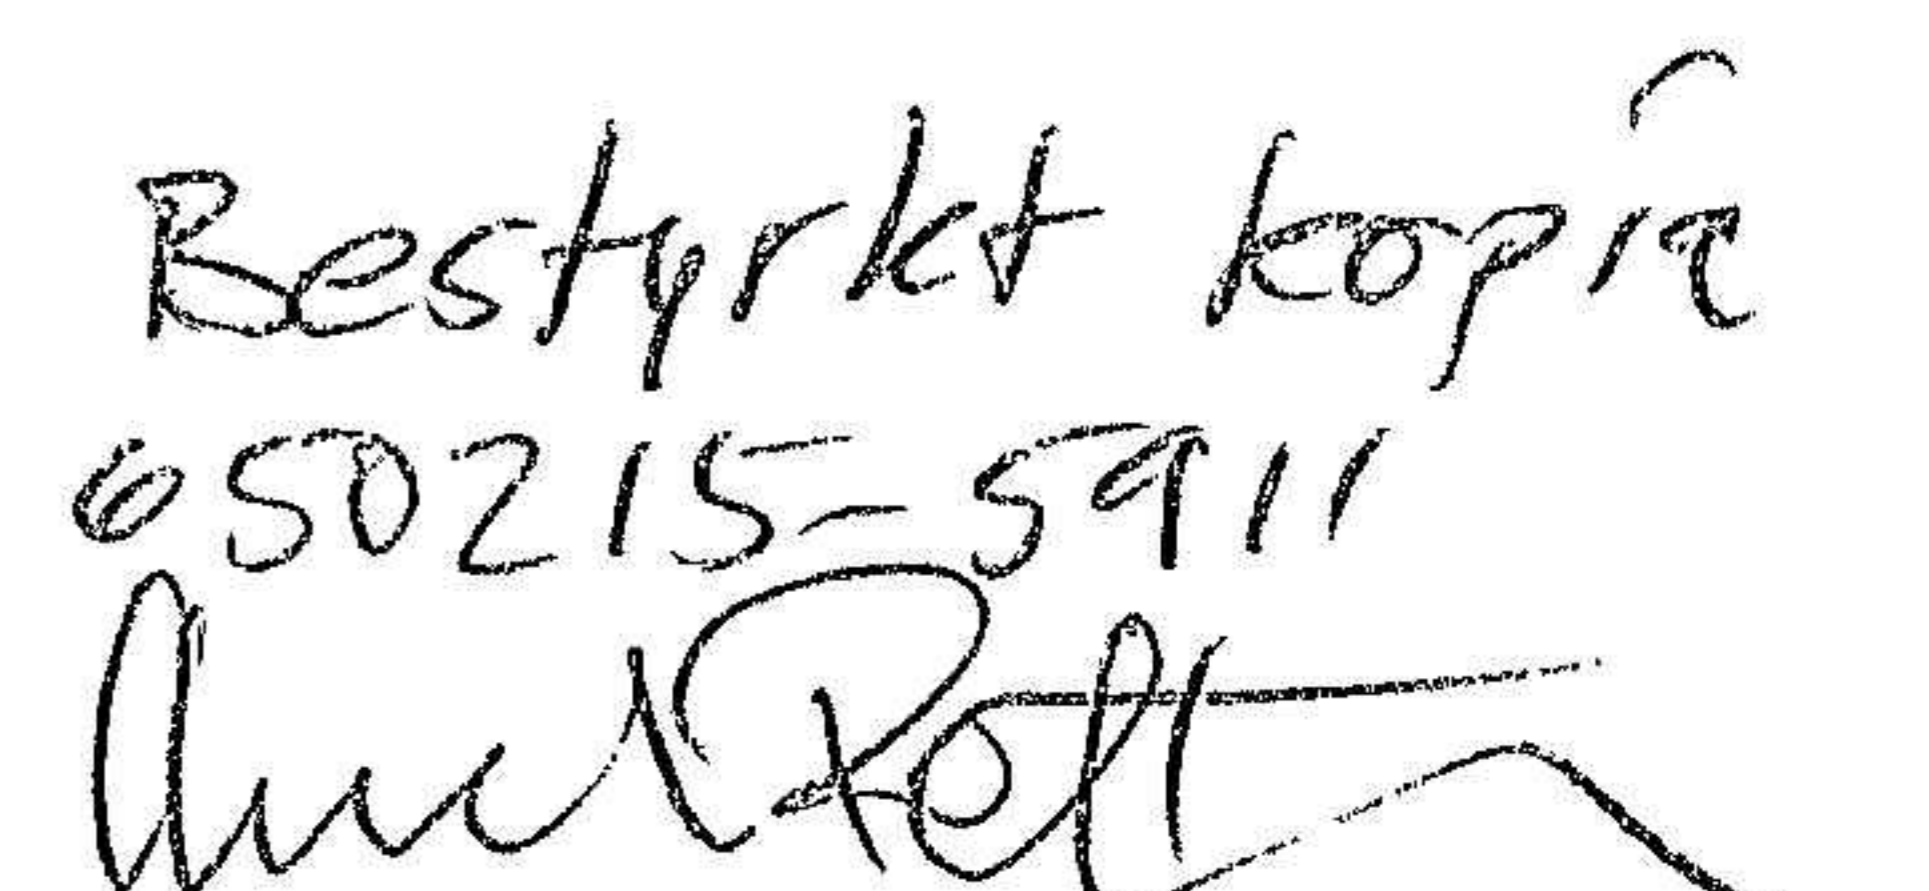 Bestyrkt kopia
650215-5911